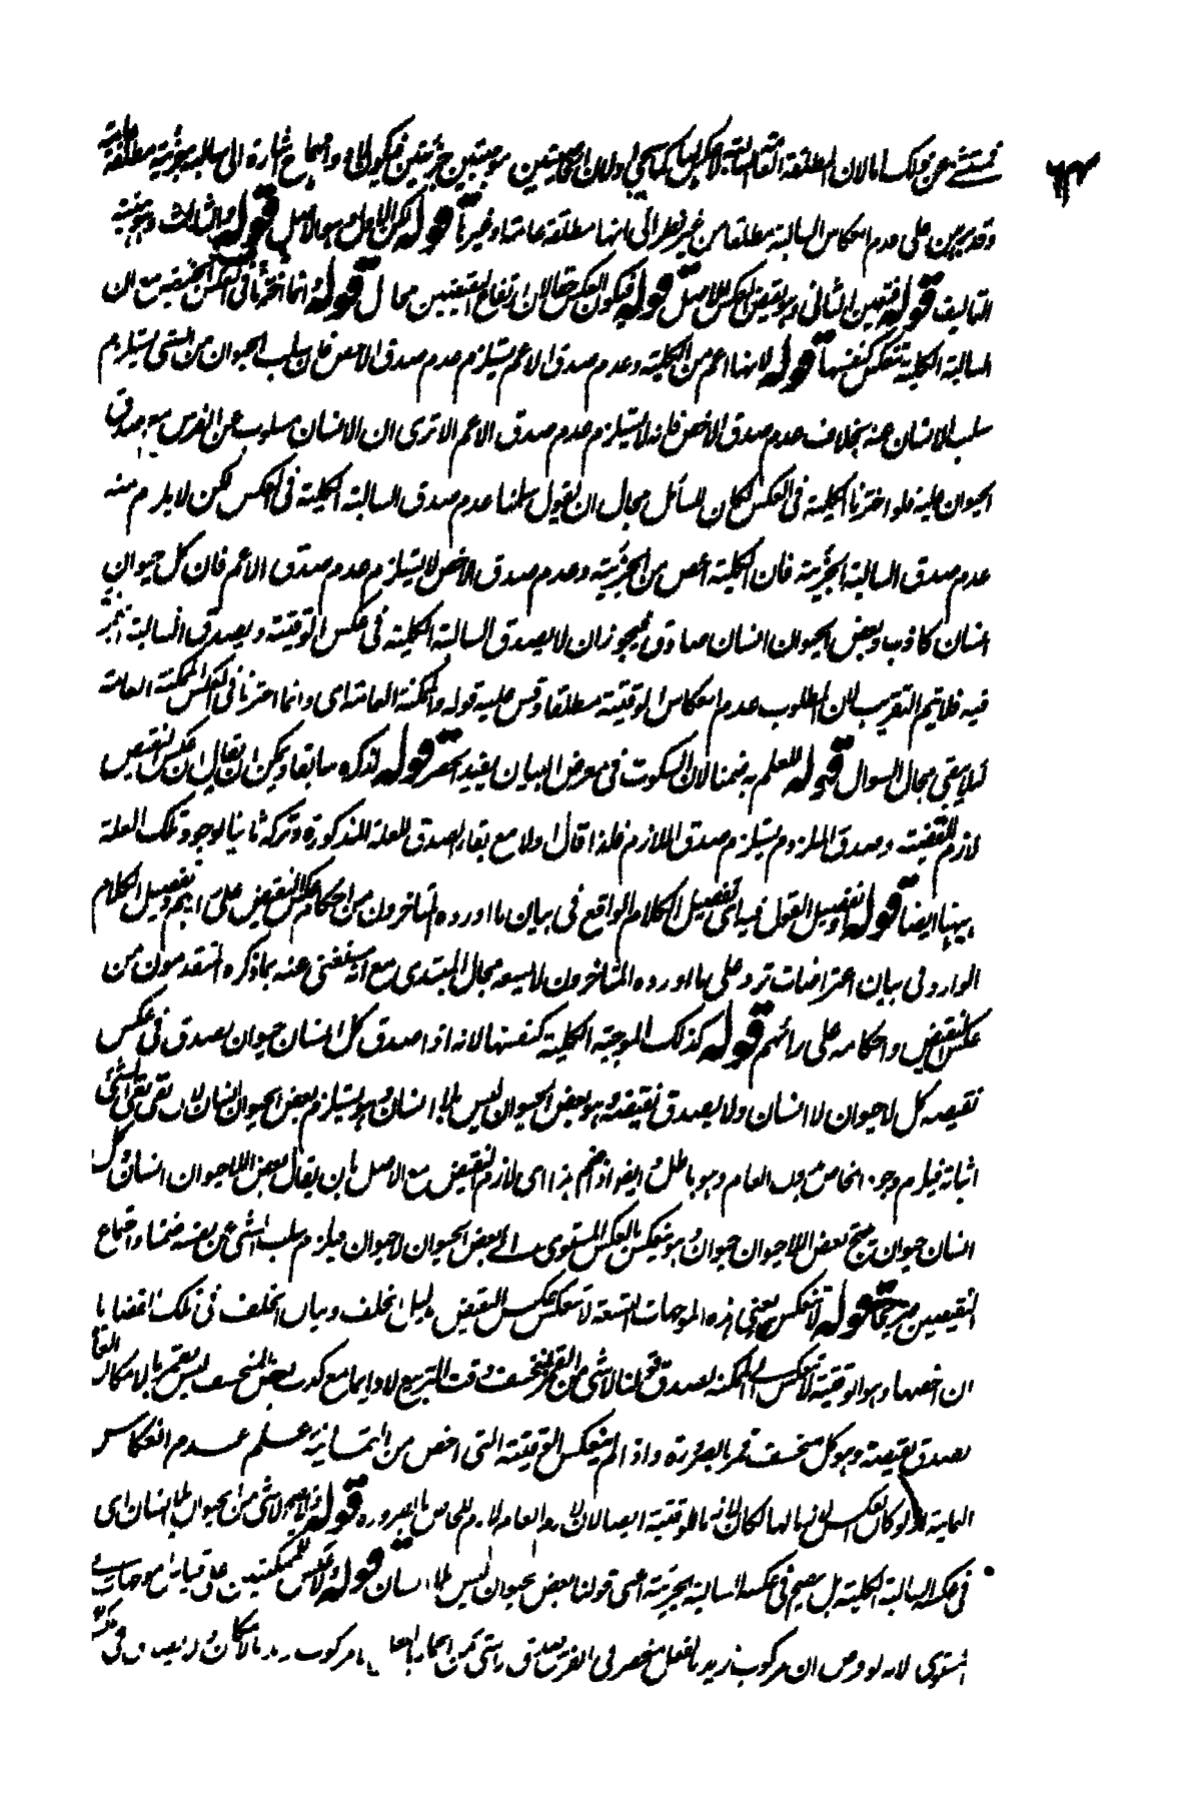 عن ذلك اما لان المطلقة العامة السالبة لا تنعكس كما سيجئ او لان الخاصتين موجبتين جزئيتين فيكون لا دوامهما اشارة الى سالبة جزئية مطلقة عامة
وقد برهن على عدم انعكاس السالبة مطلقا من غير نظر الى انها مطلقة عامة او غيرها قوله لكن الاول هو الاصل قوله والثالث وهو هيئة
التاليف قوله فتعين الثانى وهو نقيض العكس للاصل قوله فيكون العكس حقا لان ارتفاع النقيضين محال قوله وانما اخترنا فى العكس الجزئية مع ان
السالبة الكلية تنعكس كنفسها قوله لانها اعم من الكلية وعدم صدق الاعم يستلزم عدم صدق الاخص فان سلب الحيوان من الشئ يستلزم
سلب الانسان عنه بخلاف عدم صدق الاخص فانه لا يستلزم عدم صدق الاعم الا ترى ان الانسان مسلوب عن الفرس مع صدق
الحيوان عليه فلو اخترنا الكلية فى العكس لكان للسائل مجال ان يقول سلمنا عدم صدق السالبة الكلية فى العكس لكن لا يلزم منه
عدم صدق السالبة الجزئية فان الكلية اخص من الجزئية وعدم صدق الاخص لا يستلزم عدم صدق الاعم فان كل حيوان
انسان كاذب وبعض الحيوان انسان صادق فيجوز ان لا يصدق السالبة الكلية فى عكس الوقتية ويصدق السالبة الجزئية
فيه فلا يتم التقريب لان المطلوب عدم انعكاس الوقتية مطلقا وقس عليه قوله والممكنة العامة اى وانما اخترنا فى العكس الممكنة العامة
لئلا يبقى مجال السوال قوله للعلم به ضمنا لان السكوت فى معرض البيان يفيد الحصر قوله لذكره سابقا ويمكن ان يقال ان عكس النقيض
لازم للقضية وصدق الملزوم يستلزم صدق اللازم فلذا قال اولا مع بقاء الصدق للعلة المذكورة وتركه ثانيا لوجود تلك العلة
ههنا ايضا قوله وتفصيل القول فيه اى تفصيل الكلام الواقع فى بيان ما اورده المتاخرون من احكام عكس النقيض على رايهم وتفصيل الكلام
الوارد فى بيان اعتراضات ترد على ما اورده المتاخرون لا يسعه مجال المبتدى مع انه مستغنى عنه بما ذكره المتقدمون من
عكس النقيض واحكامه على رائهم قوله كذلك الموجبة الكلية كنفسها لانه اذا صدق كل انسان حيوان يصدق فى عكس
نقيضه كل لا حيوان لا انسان ولا يصدق نقيضه وهو بعض الحيوان ليس بلا انسان وهو يستلزم بعض الحيوان انسان لان نفى نفى الشئ
اثباته فيلزم وجود الخاص من دون العام وهو باطل وايضا اذا ضم هذا اى لازم النقيض مع الاصل بان يقال بعض اللاحيوان انسان وكل
انسان حيوان ينتج بعض اللاحيوان حيوان وهو ينعكس بالعكس المستوى الى بعض الحيوان لا حيوان فيلزم سلب الشئ عن نفسه ضمنا واجتماع
النقيضين صريحا قوله لا تنعكس يعنى هذه الموجهات التسعة لا تنعكس بعكس النقيض بدليل الخلف وبيان الخلف فى تلك القضايا
ان اخصها وهو الوقتية لا تنعكس الى الممكنة لصدق قولنا لا شئ من القمر بمنخسف وقت التربيع لا دائما مع كذب بعض المنخسف ليس بقمر بالامكان العام
لصدق نقيضه وهو كل منخسف قمر بالضرورة واذا لم ينعكس الوقتية التى اخص من الثمانية علم عدم انعكاس
الثمانية اذ لو كان العكس لازما لها لكان لازما للوقتية ايضا لان لازم العام لازم للخاص بالضرورة قوله لا يصح لا شئ من الحيوان بلا انسان اى
فى عكسه السالبة الكلية بل يصح فى عكسه السالبة الجزئية اعنى قولنا بعض الحيوان ليس بلا انسان قوله لا عكس للممكنتين على قياس موجبات
المستوى لانه لو فرض ان مركوب زيد بالفعل منحصر فى الفرس صدق مركوب زيد بالامكان